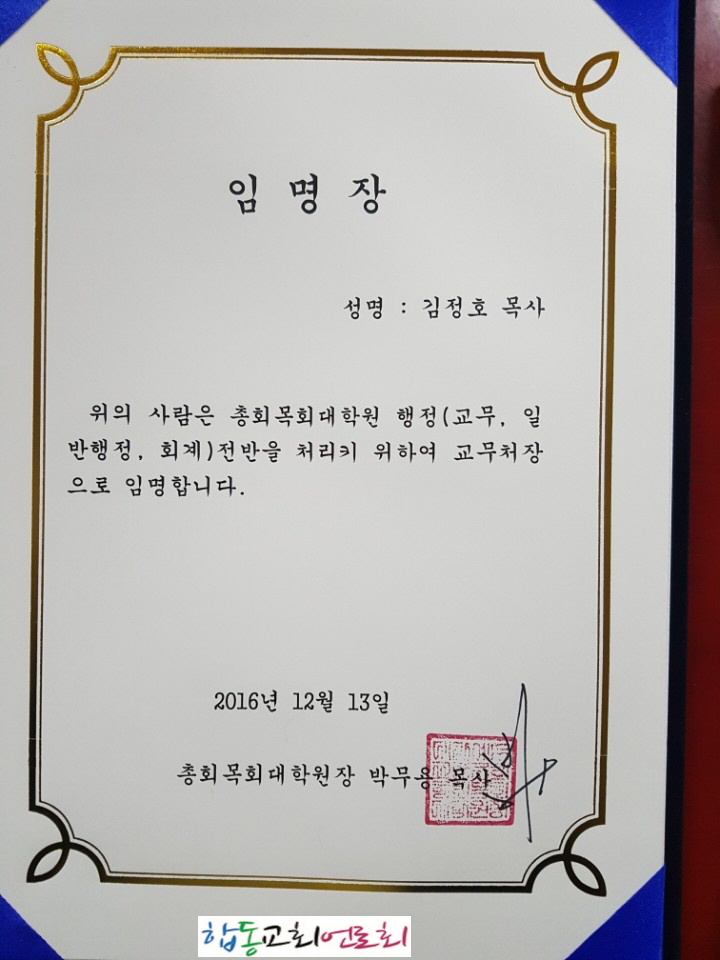 임 명 장
성명 : 김정호 목사
위의 사람은 총회목회대학원 행정(교무, 일
반행정, 회계)전반을 처리키 위하여 교무처장
으로 임명합니다.
2016년 12월 13일
총회목회대학원장 박무용 목사
합동교회언론회